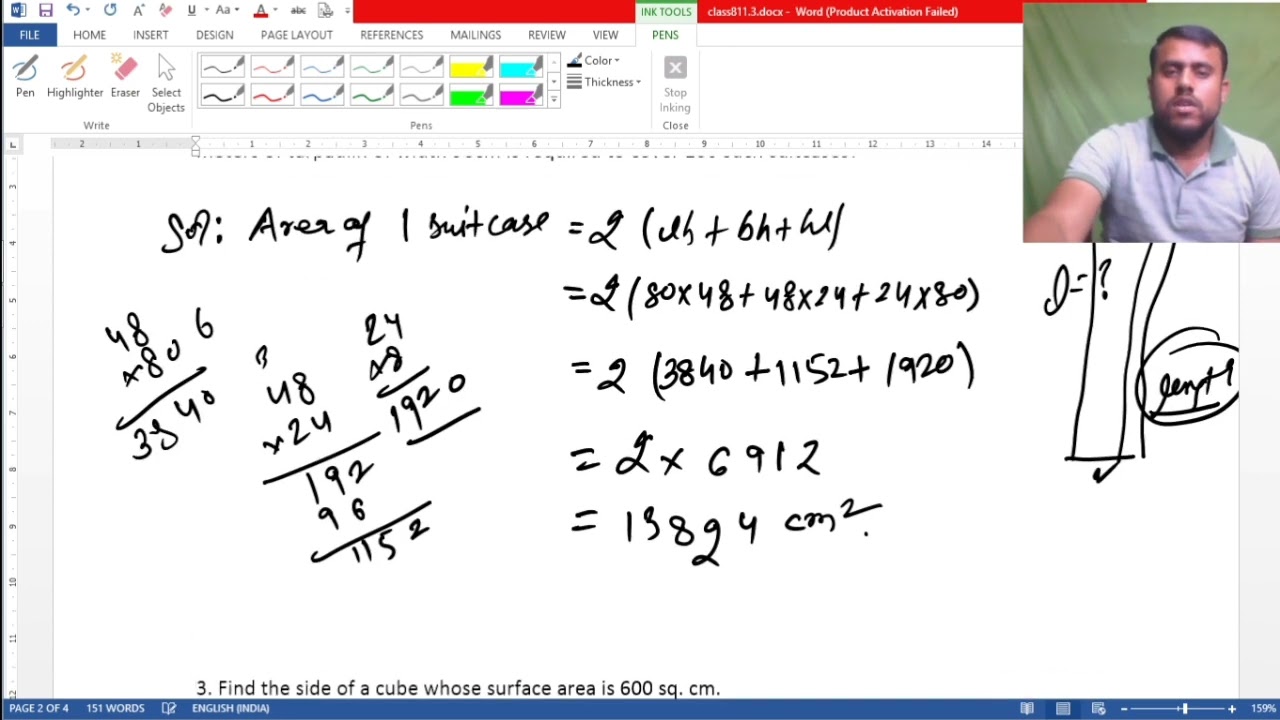 INK TOOLS
class811.3.docx - Word (Product Activation Failed)
FILE HOME INSERT DESIGN PAGE LAYOUT REFERENCES MAILINGS REVIEW VIEW PENS
Pen Highlighter Eraser Select Objects
Color
Thickness
Stop Inking
Write Pens Close
2 1 1 2 3 4 5 6 7 8 9 10 11 12 13 14
Sol: Area of 1 suitcase = 2 (lb + bh + hl)
= 2 (80×48 + 48×24 + 24×80)
= 2 (3840 + 1152 + 1920)
= 2 × 6912
= 13824 cm².
48
×80
3840
6
3
48
×24
192
96
1152
24
×8
1920
l = ?
length
3. Find the side of a cube whose surface area is 600 sq. cm.
PAGE 2 OF 4 151 WORDS ENGLISH (INDIA) 159%